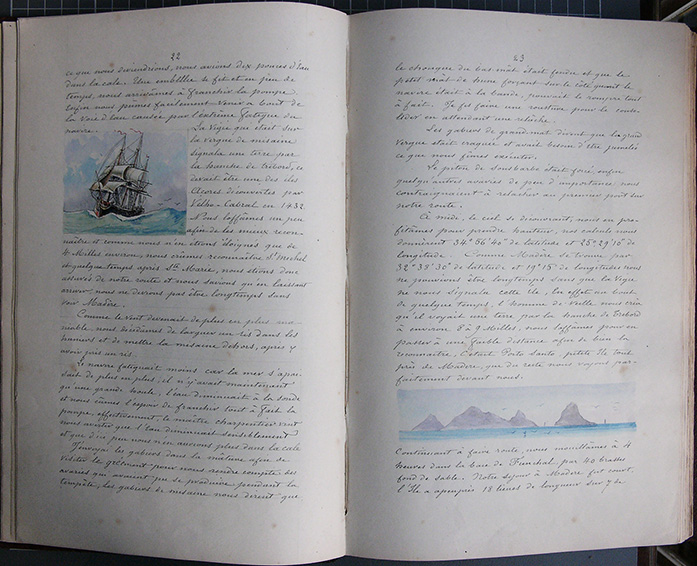 22
ce que nous deviendrions, nous avions dix pouces d'eau
dans la cale. Une embellie se fit et en peu de
temps, nous arrivâmes à franchir la pompe.
Enfin nous pûmes facilement venir à bout de
la Voie d'eau causée par l'extrême fatigue du
navire.
La Vigie qui était sur
la vergue de misaine
signala une terre par
la hanche de tribord, ce
devait être une des iles
Açores découvertes par
Velho-Cabral en 1432.
Nous loffâmes un peu
afin de les mieux recon-
naître et comme nous n'en étions éloignés que de
4 Milles environ, nous crûmes reconnaître St Michel
et quelque temps après Ste Marie, nous étions donc
assurés de notre route et nous savions qu'en laissant
arriver nous ne devions pas être longtemps sans
voir Madère.
Comme le vent devenait de plus en plus ma-
niable, nous décidâmes de larguer un ris dans les
huniers et de mettre la misaine dehors, après y
avoir pris un ris.
Le navire fatiguait moins car la mer s'apai-
sait de plus en plus, il n'y avait maintenant
qu'une grande houle, l'eau diminuait à la sonde
et nous eûmes l'espoir de franchir tout à fait la
pompe, effectivement, le maître charpentier vint
nous avertir que l'eau diminuait sensiblement
et que d'ici peu nous n'en aurions plus dans la cale
J'envoyai les gabiers dans la mâture afin de
visiter le gréement pour nous rendre compte des
avaries qui avaient pu se produire pendant la
tempête, les gabiers de misaine nous dirent que
23
le chouque du bas mât était fendu et que le
petit mât de hune forçait sur le côté quand le
navire était à la bande, pouvait se rompre tout
à fait. Je fis faire une rousture pour le conso-
lider en attendant une relâche.
Les gabiers de grand mât dirent que la grand
vergue était craquée et avait besoin d'être jumelée
ce que nous fîmes exécuter.
Le piton de sousbarbe était foiré, enfin
quelqu'autres avaries de peu d'importance nous
contraignaient à relâcher au premier port sur
notre route.
A midi, le ciel se découvrant, nous en pro-
fitâmes pour prendre hauteur, nos calculs nous
donnèrent 34° 56' 40" de latitude et 25° 29' 15" de
longitude. Comme Madère se trouve par
32° 38' 30" de latitude et 19° 15' de longitude nous
ne pouvions être longtemps sans que la Vigie
ne nous signala cette île, en effet au bout
de quelque temps, l'homme de Veille nous cria
qu'il voyait une terre par la hanche de tribord
à environ 8 à 9 Milles, nous loffâmes pour en
passer à une faible distance afin de bien la
reconnaître, c'était Porto Santo, petite île tout
près de Madère, que du reste nous voyons par-
faitement devant nous.
Continuant à faire route, nous mouillâmes à 4
heures dans la baie de Funchal, par 40 brasses
fond de sable. Notre séjour à Madère fut court.
L'île a àpeuprès 18 lieues de longueur sur 7 de